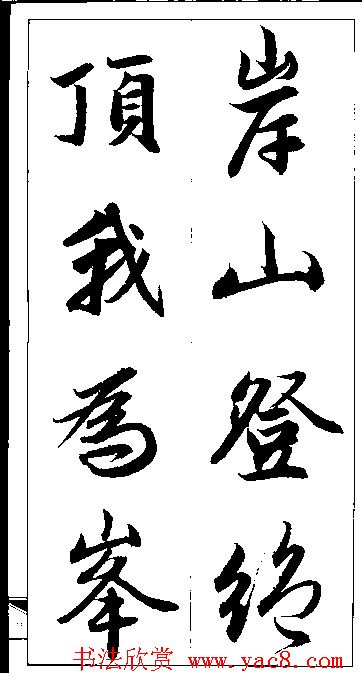 岸山登绝
頂我為峯
书法欣赏 www.yac8.com